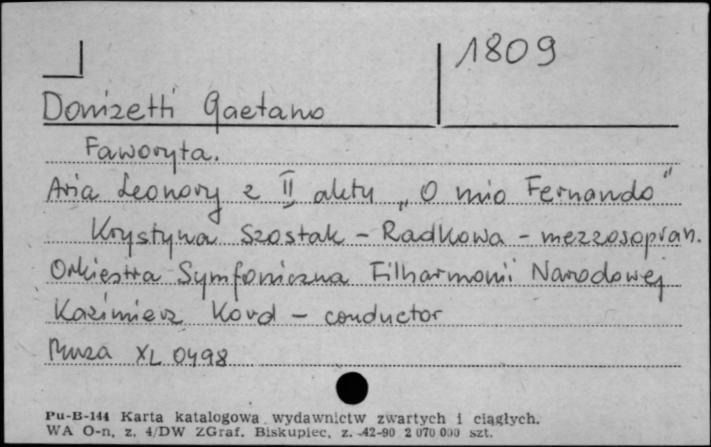 1809
Donizetti Gaetano
Faworyta.
Aria Leonory z II aktu „O mio Fernando"
Krystyna Szostak - Radkowa - mezzosopran.
Orkiestra Symfoniczna Filharmonii Narodowej
Kazimierz Kord - conductor
Muza XL 0498
Pu-B-144 Karta katalogowa wydawnictw zwartych i ciągłych.
WA O-n, z. 4/DW ZGraf. Biskupiec, z. 42-90 2 070 000 szt.